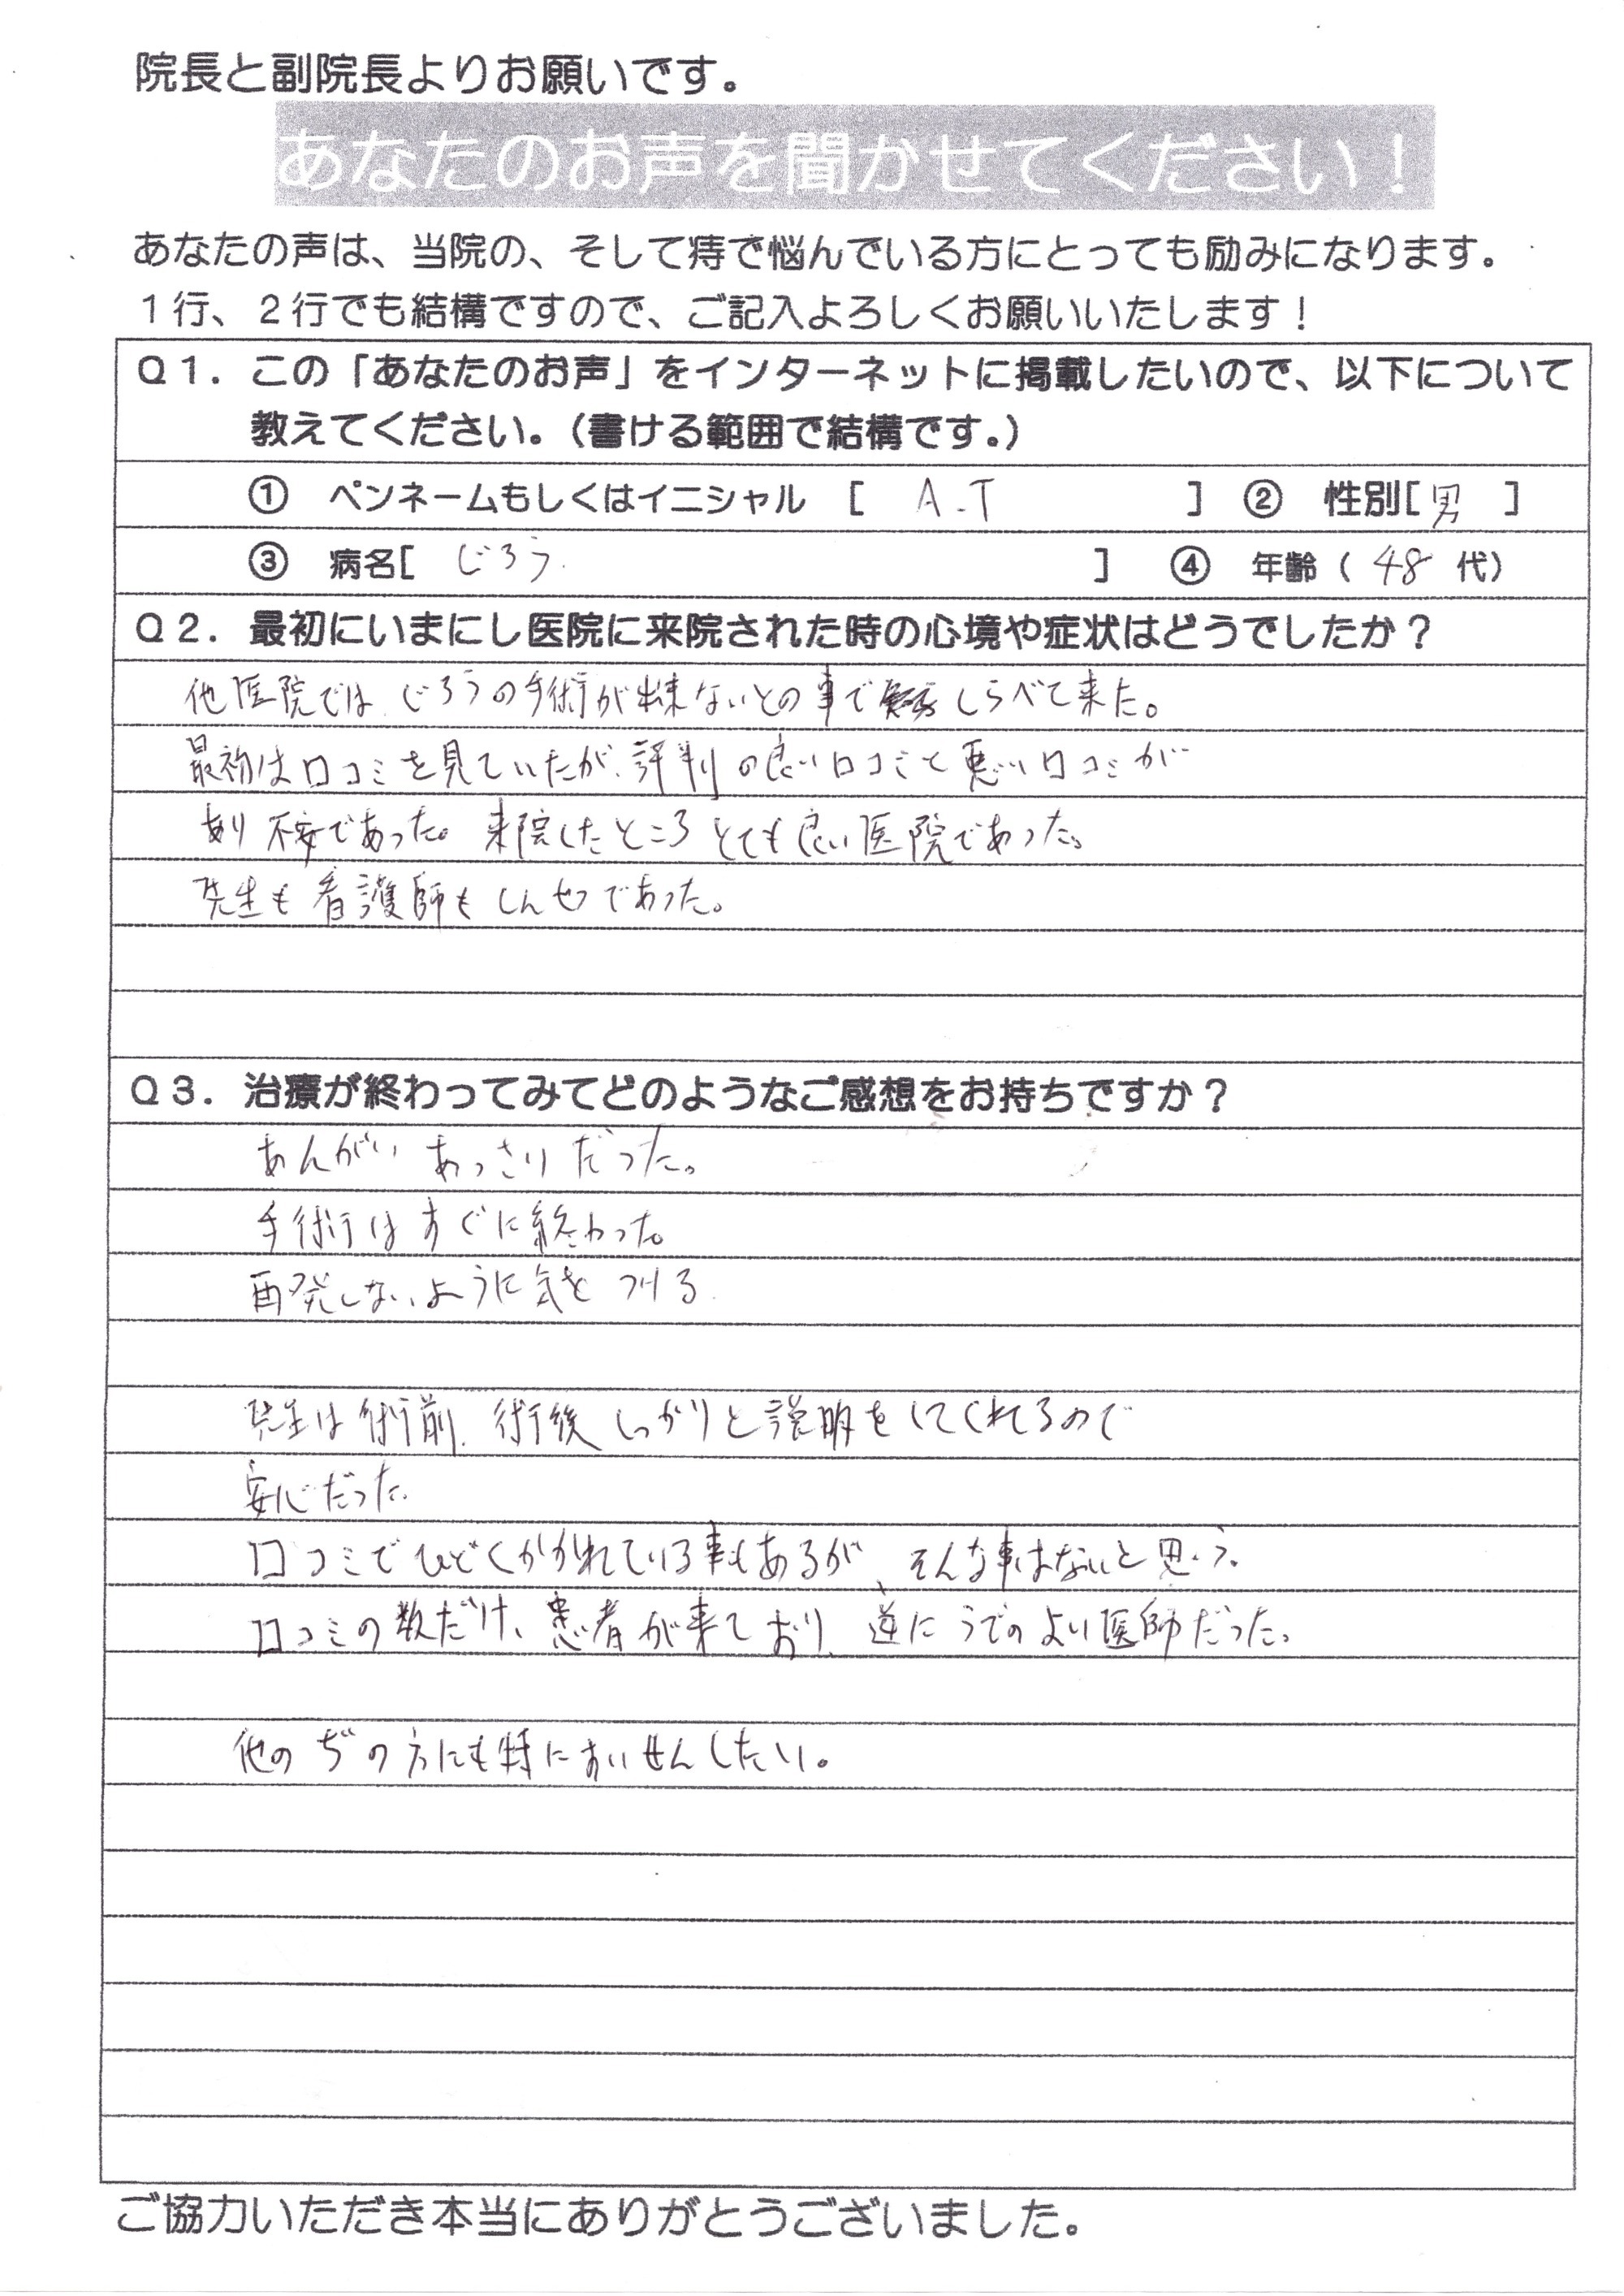 院長と副院長よりお願いです。
あなたのお声を聞かせてください！
あなたの声は、当院の、そして痔で悩んでいる方にとっても励みになります。
１行、２行でも結構ですので、ご記入よろしくお願いいたします！
Ｑ１．この「あなたのお声」をインターネットに掲載したいので、以下について
教えてください。（書ける範囲で結構です。）
① ペンネームもしくはイニシャル [ A.T ] ② 性別[ 男 ]
③ 病名[ じろう ] ④ 年齢（ 48 代）
Ｑ２．最初にいまにし医院に来院された時の心境や症状はどうでしたか？
他医院では、じろうの手術が出来ないとの事で しらべて来た。
最初は口コミを見ていたが、評判の良い口コミと悪い口コミが
あり不安であった。来院したところとても良い医院であった。
先生も看護師もしんせつであった。
Ｑ３．治療が終わってみてどのようなご感想をお持ちですか？
あんがい あっさりだった。
手術はすぐに終わった。
再発しないように気をつける
先生は術前、術後しっかりと説明をしてくれるので
安心だった。
口コミでひどくかかれている事もあるが、そんな事はないと思う。
口コミの数だけ、患者が来ており、逆にうでのよい医師だった。
他のぢの方にも特においせんしたい。
ご協力いただき本当にありがとうございました。